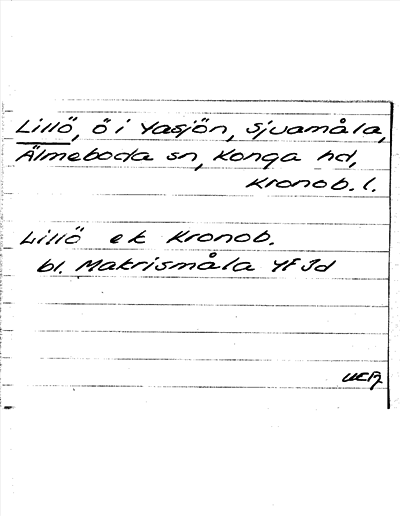 Lillö, ö i Yasjön, Sjuamåla,
Älmeboda sn, Konga hd,
Kronob. l.
Lillö ek Kronob.
bl. Makrismåla Yf Jd